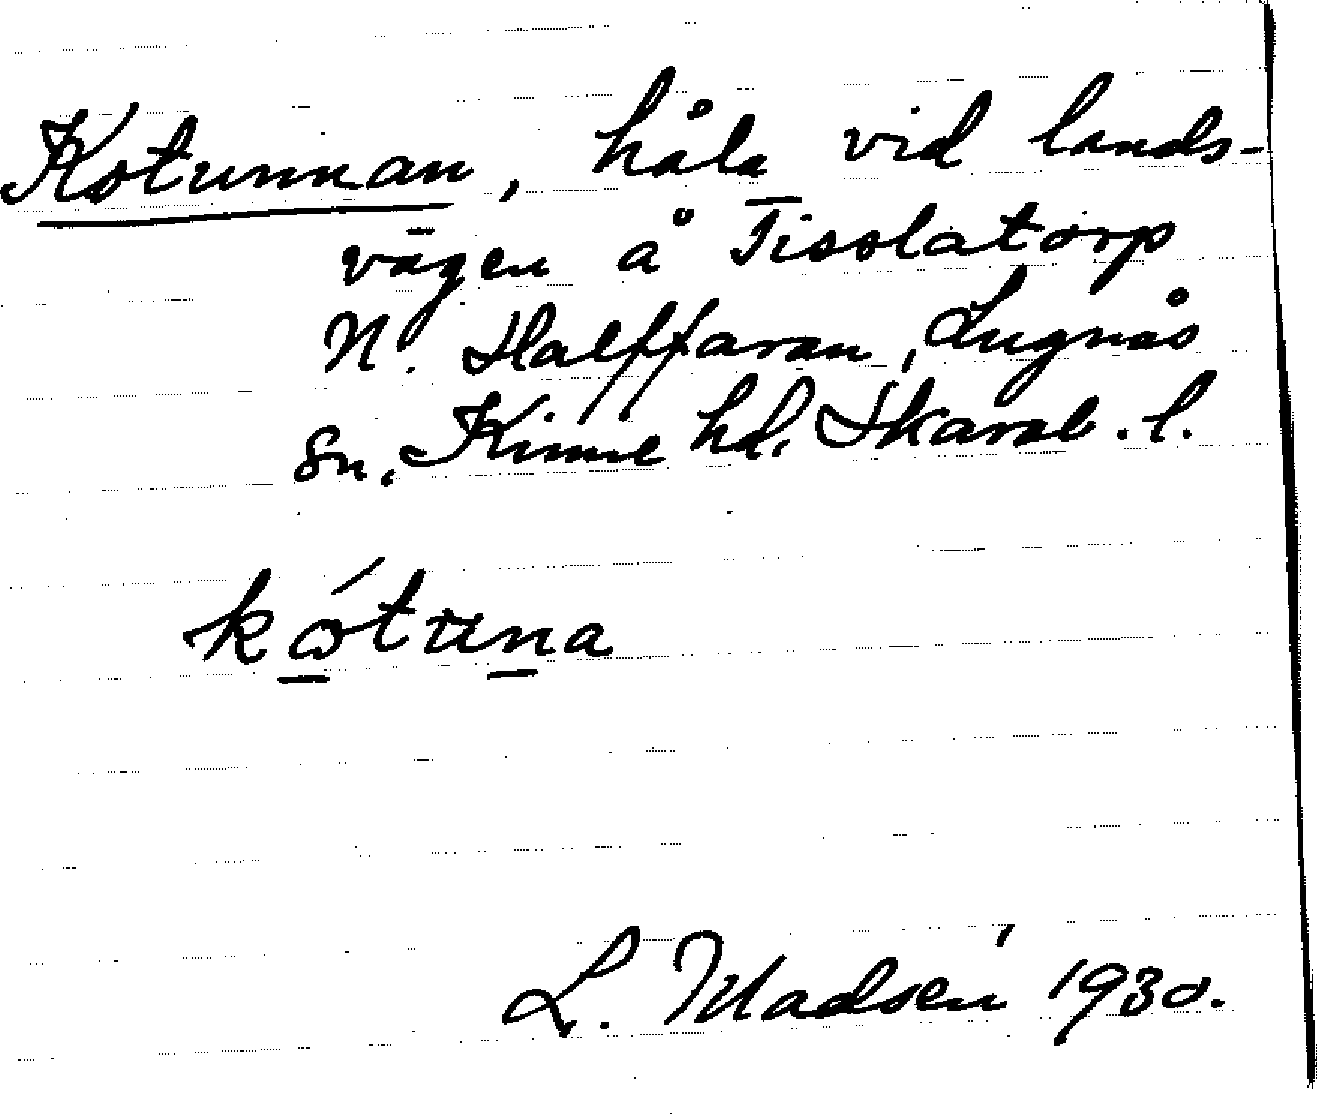 Kotunnan, håla vid lands-
vägen å Tisslatorp
N. Halffaran, Lugnås
sn. Kinne hd. Skarab. l.
kótuna
L. Madsén 1930.